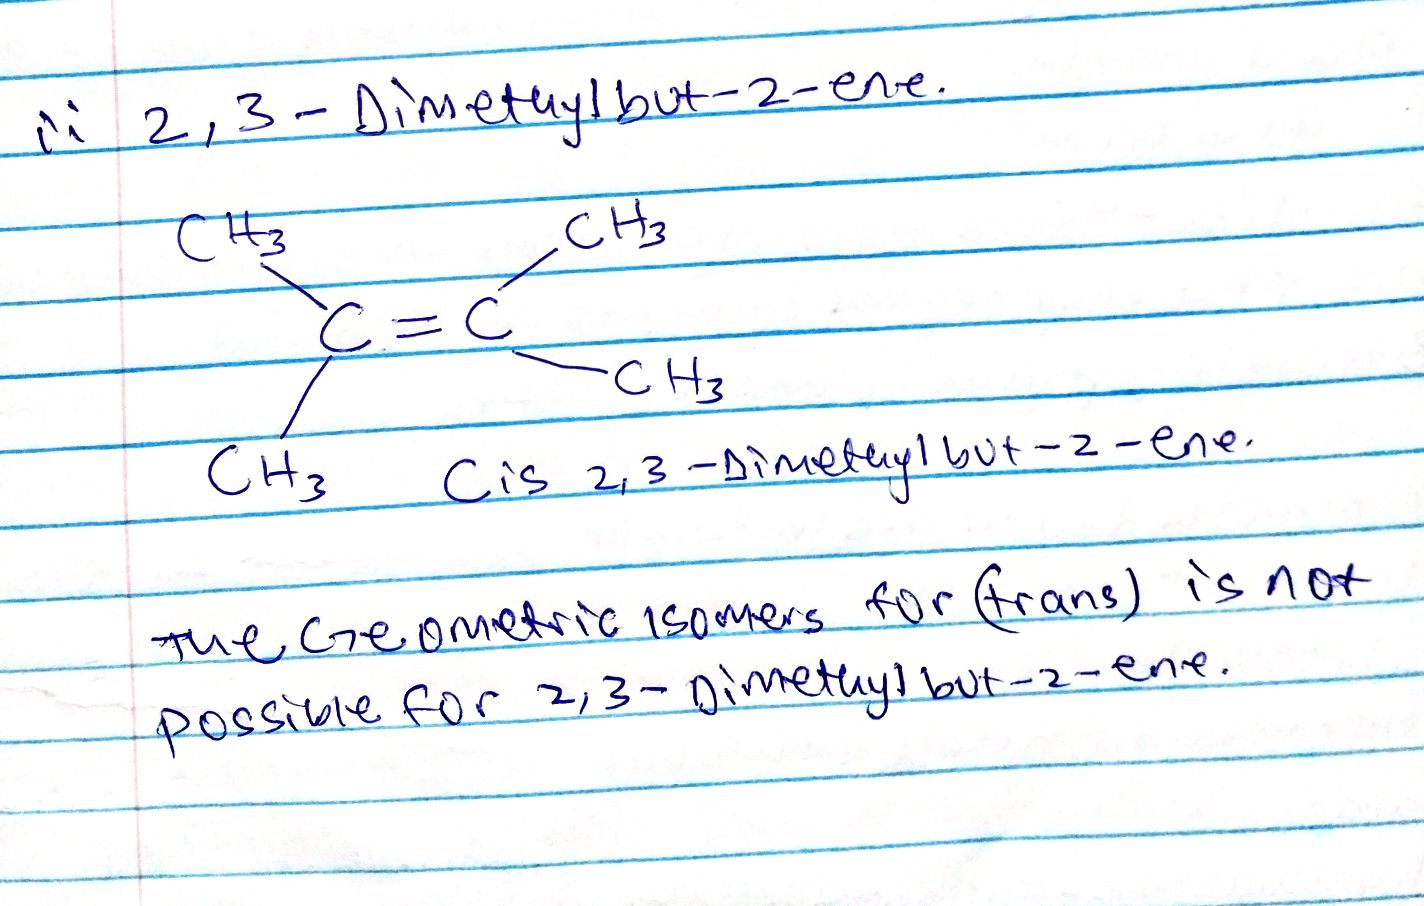 ii 2,3-Dimethylbut-2-ene.
CH3 CH3
C=C
CH3
CH3 Cis 2,3-Dimethylbut-2-ene.
The Geometric isomers for (trans) is not
possible for 2,3-Dimethylbut-2-ene.